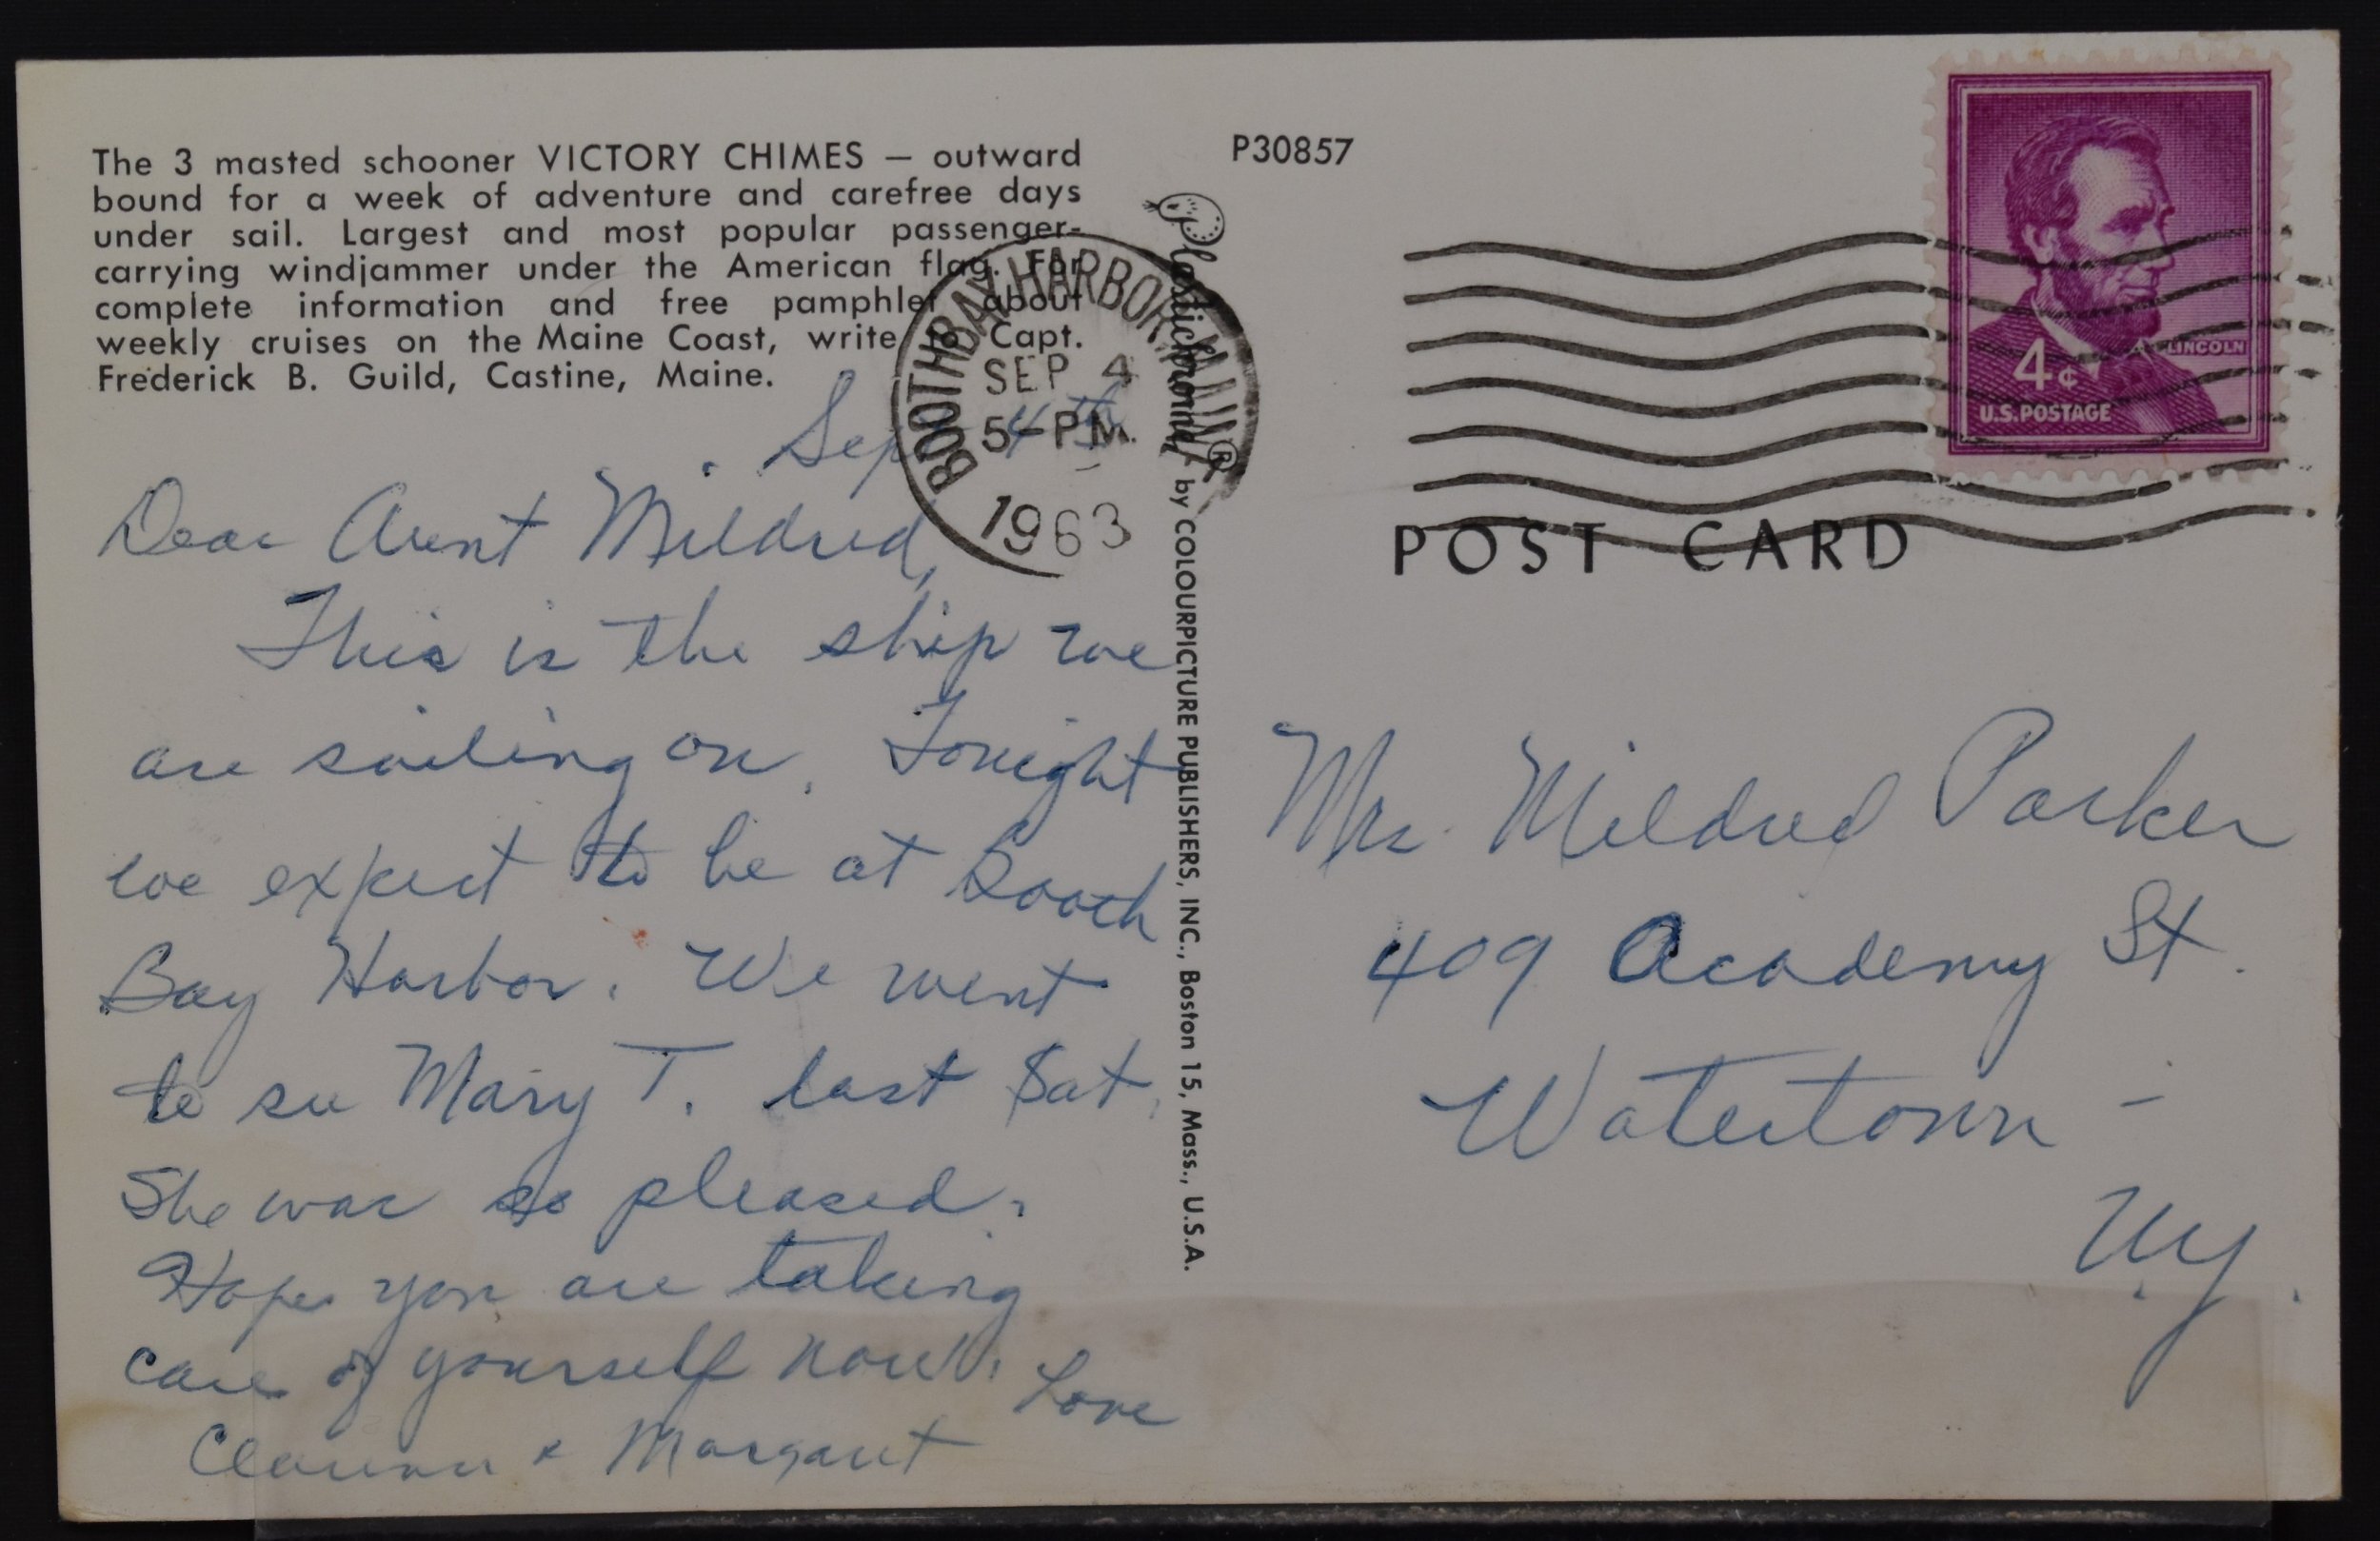 The 3 masted schooner VICTORY CHIMES — outward
bound for a week of adventure and carefree days
under sail. Largest and most popular passenger-
carrying windjammer under the American flag. For
complete information and free pamphlet about
weekly cruises on the Maine Coast, write to Capt.
Frederick B. Guild, Castine, Maine.
Sept 4th
Dear Aunt Mildred,
This is the ship we
are sailing on. Tonight
we expect to be at Booth
Bay Harbor. We went
to see Mary T. last Sat.
She was so pleased.
Hope you are taking
care of yourself now. Love
Clarence & Margaret
BOOTHBAY HARBOR MAINE
SEP 4
5-PM
1963
Plastichrome ® by COLOURPICTURE PUBLISHERS, INC., Boston 15, Mass., U.S.A.
P30857
LINCOLN
4¢
U.S. POSTAGE
POST CARD
Mrs. Mildred Parker
409 Academy St.
Watertown -
N.Y.